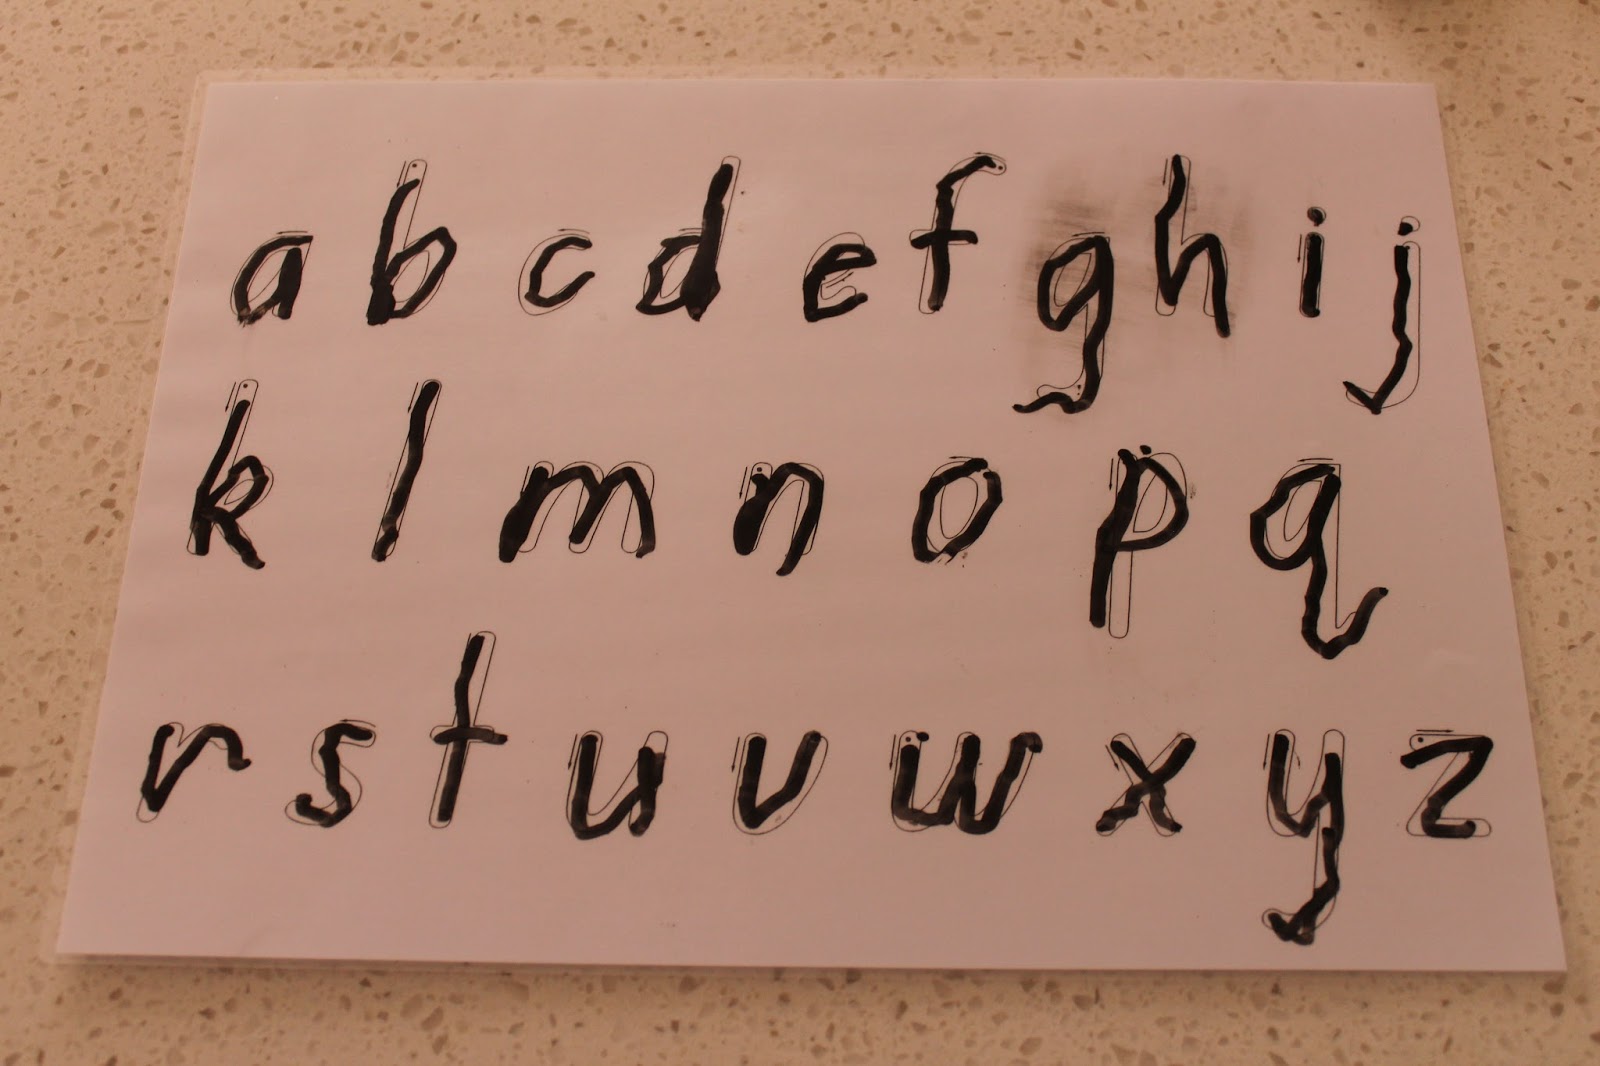 a b c d e f g h i j
k l m n o p q
r s t u v w x y z